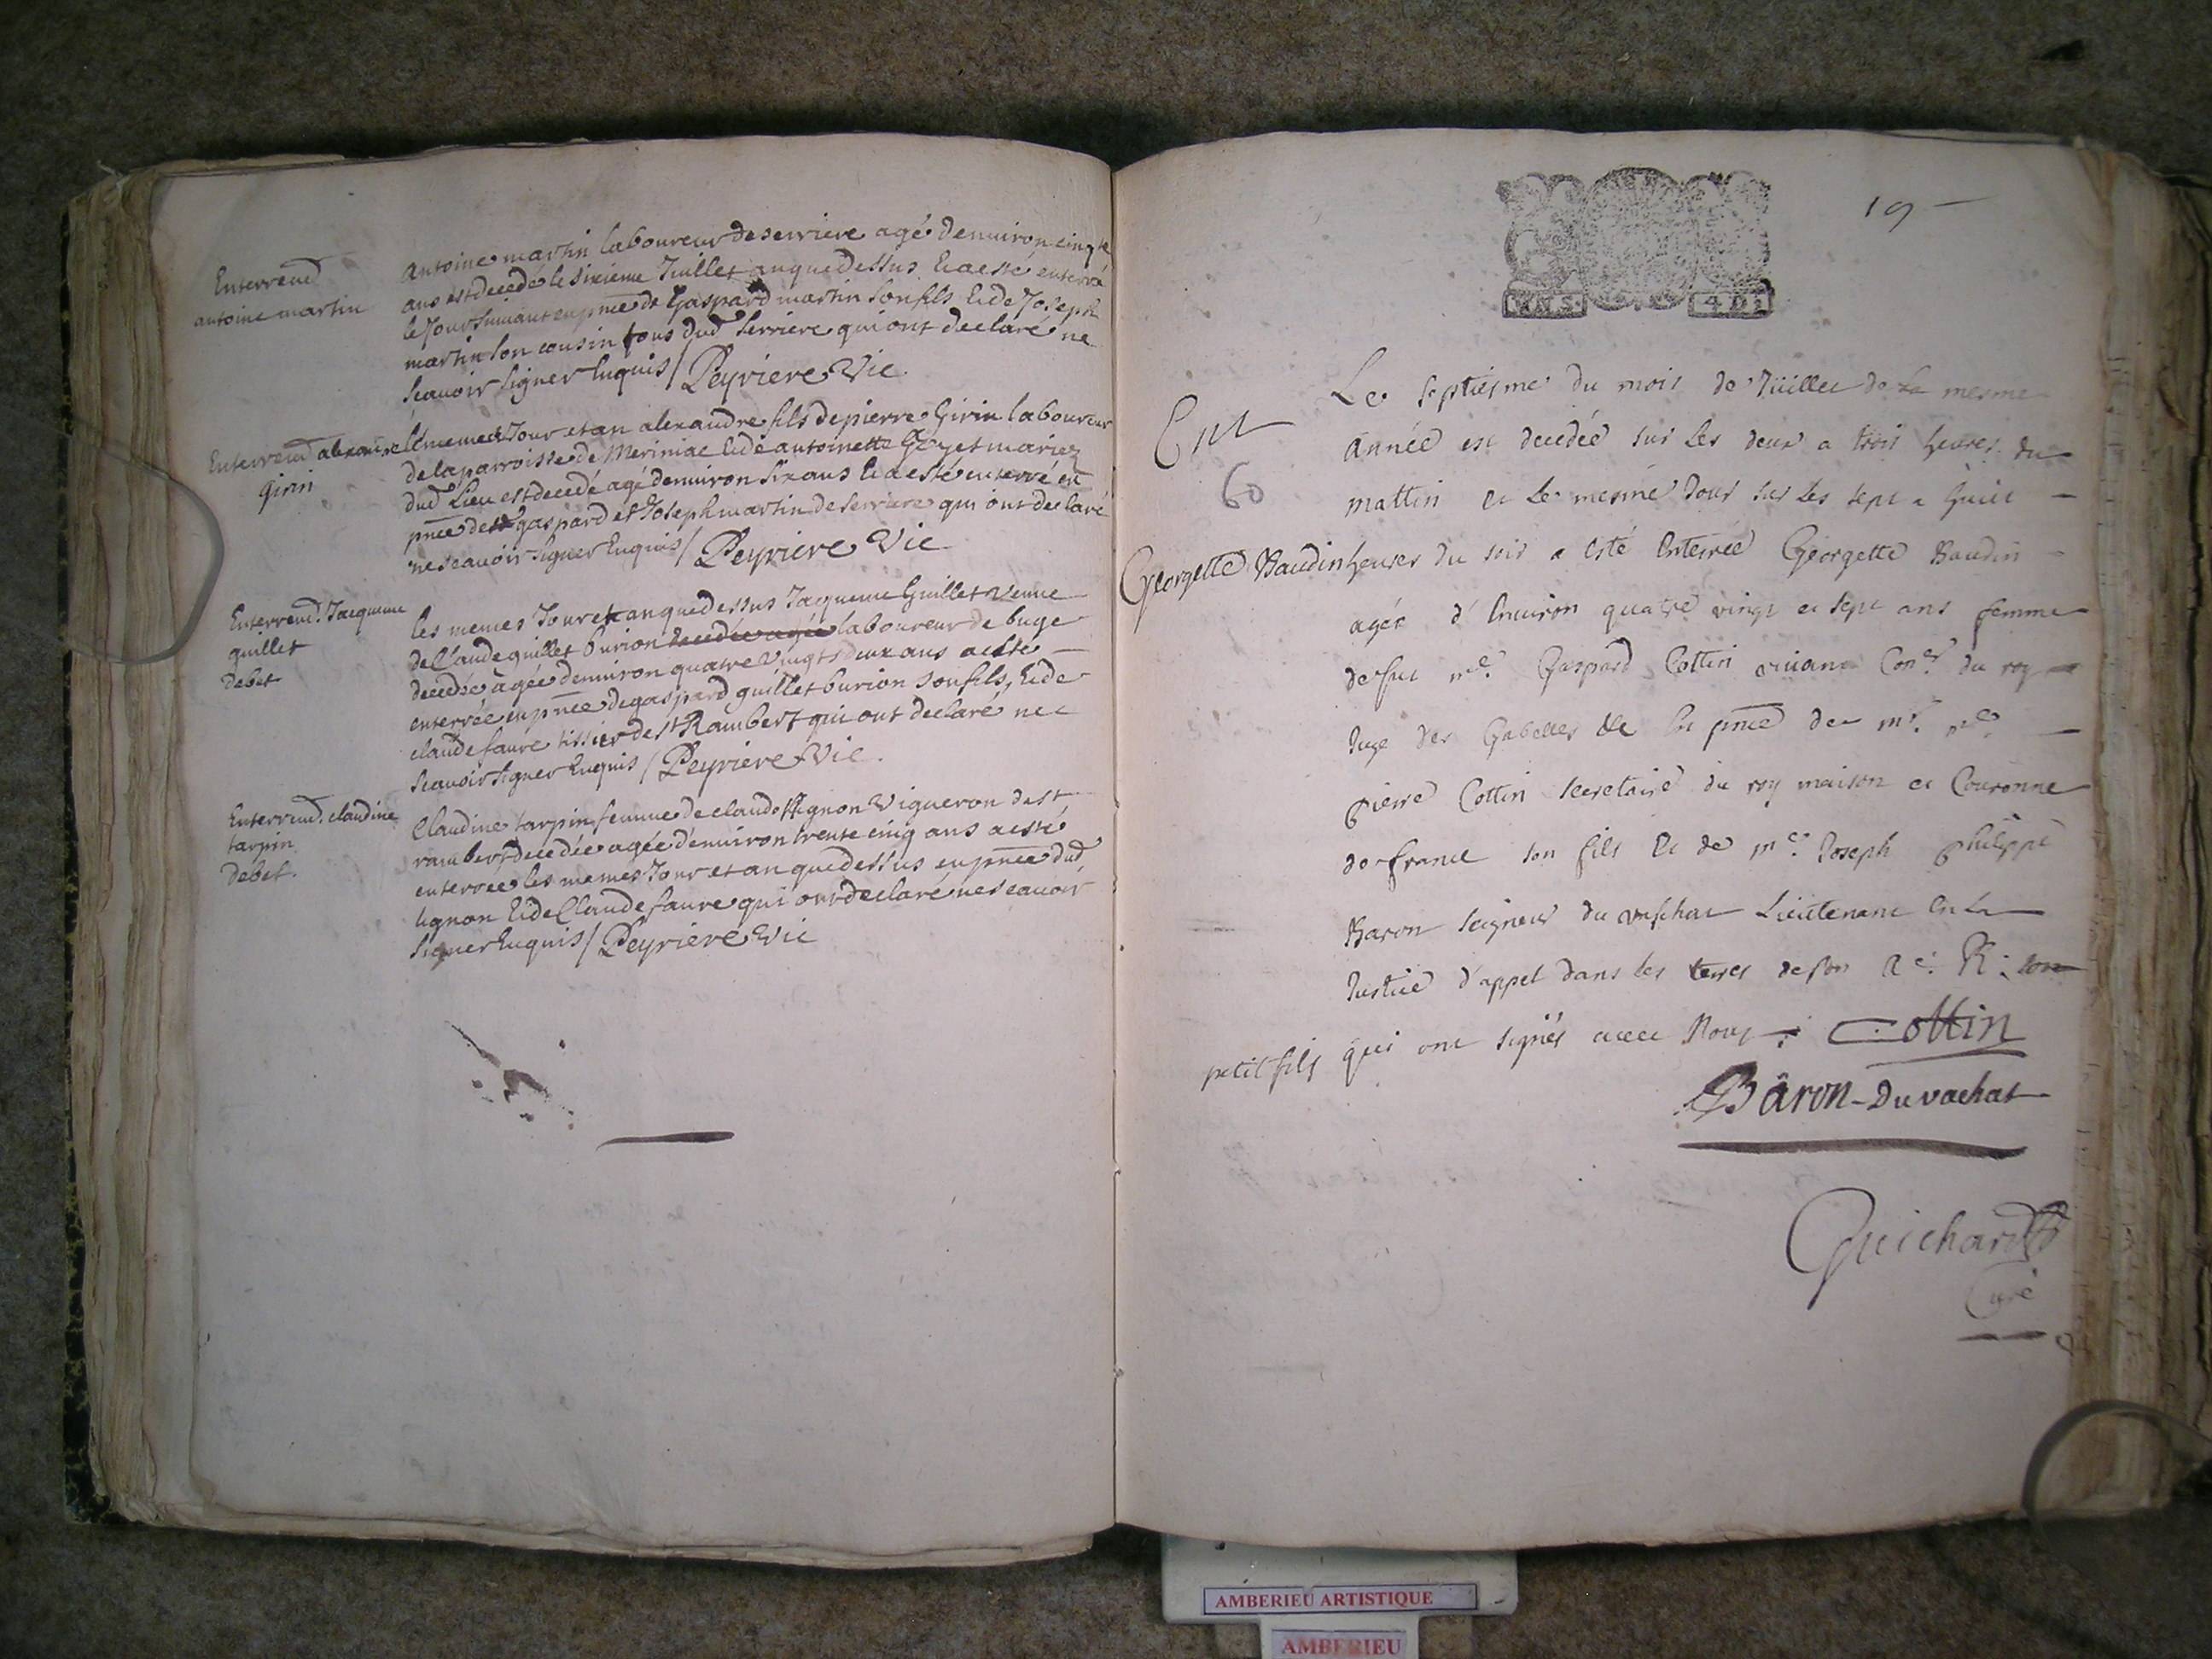 Enterremt
antoine martin
antoine martin laboureur de serriere agé denuiron cinqte
ans est decedé le sixieme Juillet an que dessus Et a esté enterré
le Jour suiuant en pnce de Gaspard martin son fils Et de Joseph
martin son cousin tous dud Serriere qui ont declaré ne
scauoir signer Enquis / Peyriere Vic.
Enterremt alexandre
girin
le meme Jour et an alexandre fils de pierre Girin laboureur
de la parroisse de Meriniac Et de antoinette Goyet mariez
dud Lieu est decedé agé denuiron six ans Et a esté enterré en
pnce de gaspard et Joseph martin de serriere qui ont declaré
ne scauoir signer Enquis / Peyriere Vic
Enterremt Jacquemе
guillet
debet
les memes Jour et an que dessus Jacqueme Guillet veuue
de Claude guillet burion decedée agée laboureur de buge
decedée agée denuiron quatre vingts deux ans a esté
enterrée en pnce de gaspard guillet burion son fils, Et de
claude faure tissier de st Rambert qui ont declaré ne
scauoir signer Enquis / Peyriere Vic.
Enterremt claudine
tarpin
debet.
Claudine tarpin femme de claude lignon Vigneron de st
rambert decedée agée denuiron trente cinq ans a esté
enterrée les memes Jour et an que dessus en pnce dud
lignon Et de Claude faure qui ont declaré ne scauoir
signer Enquis / Peyriere Vic
19
4 D
Le septiesme du mois de Juillet de la mesme
Ent
année est decedée sur les deux a trois heures du
60
mattin et le mesme Jour sur les sept a huict
Georgette Baudin
heures du soir a esté Enterrée Georgette Baudin
agée d'Enuiron quatre vingt et sept ans femme
de fut me. Gaspard Cottin viuant Coner. du roy
Juge des Gabelles En pnce de mr. me.
pierre Cottin secretaire du roy maison et Couronne
de france son fils Et de me. Joseph philippe
Baron seigneur du vachat Lieutenant En La
Justice d'appel dans les terres de son A e. R: son
petit fils qui ont signés auec Nous. Cottin
Bâron-Duvachat
Guichard
Curé
AMBERIEU ARTISTIQUE
AMBERIEU